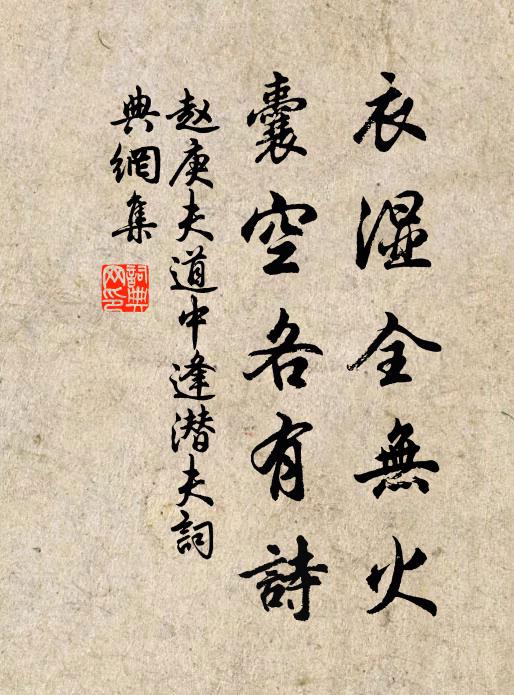 衣湿全無火
囊空各有詩
赵庚夫道中逢潜夫詞
典網集
詞典
网印